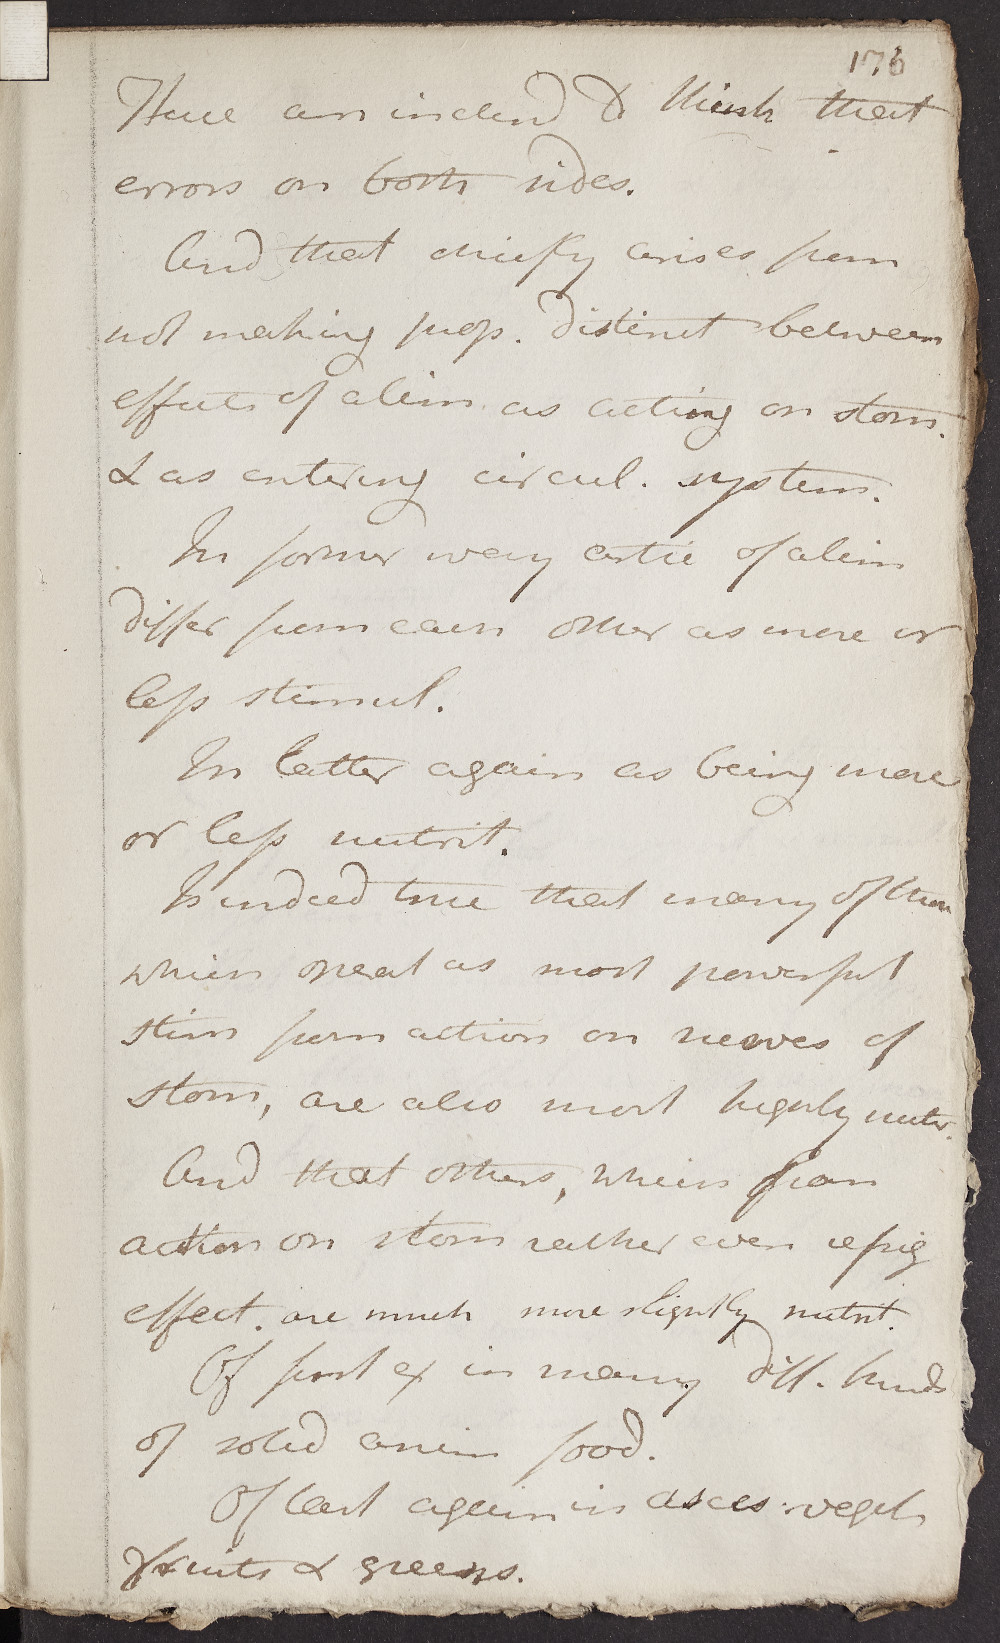 176
Here am inclin'd to think that
errors on both sides.
And that chiefly arises from
not making prop. distinct between
effects of alim. as acting on stom.
& as entering circul. system.
In former way artic of alim
differ from each other as more or
less stimul.
In latter again as being more
or less nutrit.
Is indeed true that many of them
which operat as most powerful
stim from action on nerves of
stom, are also most highly nutr.
And that others, which from
action on stom rather even refrig
effect. are much more slightly nutrit.
Of first ex in many diff. kinds
of solid anim food.
Of last again in asces. veget.
fruits & greens.